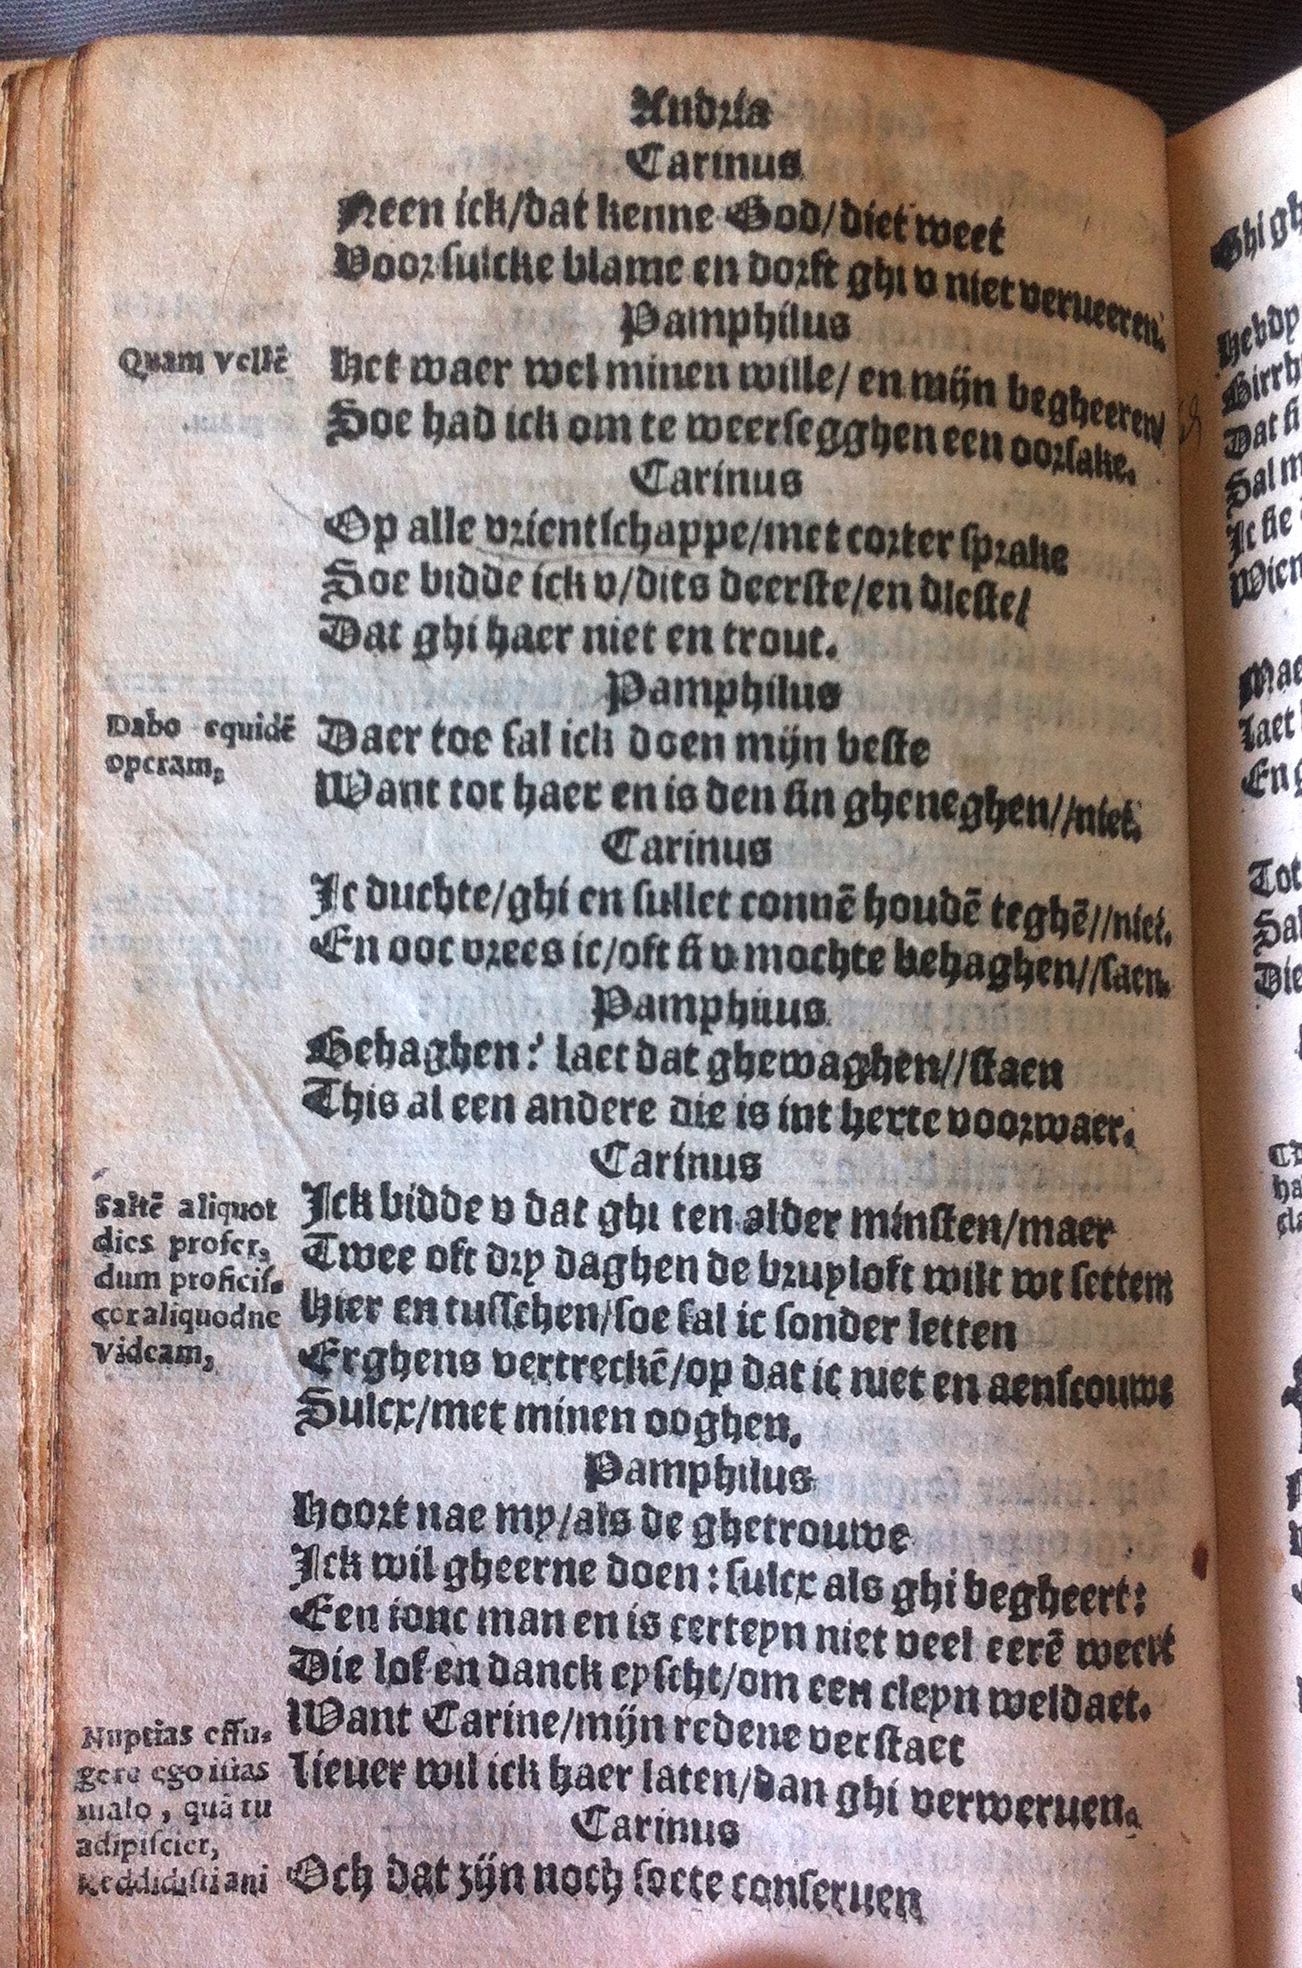 Andria
Carinus
Neen ick/dat kenne God/diet weet
Voor sulcke blame en dorft ghi v niet verueeren.
Pamphilus
Quam vellē
Het waer wel minen wille/ en mijn begheeren/
Soe had ick om te weersegghen een oorsake.
Carinus
Op alle vrientschappe/met corter sprake
Soe bidde ick v/dits deerste/en dleste/
Dat ghi haer niet en trout.
Pamphilus
Dabo equidē
operam,
Daer toe sal ick doen mijn beste
Want tot haer en is den sin gheneghen//niet.
Carinus
Ic duchte/ghi en sullet connē houdē teghē//niet.
En ooc vrees ic/oft si v mochte behaghen//saen.
Pamphilus
Behaghen? laet dat ghewaghen//staen
This al een andere die is int herte voorwaer.
Carinus
Saltē aliquot
dies profer,
dum proficis-
cor aliquo dne
videam,
Ick bidde v dat ghi ten alder minsten/maer
Twee oft dry daghen de bruyloft wilt wt setten
Hier en tusschen/soe sal ic sonder letten
Erghens vertreckē/op dat ic niet en aenscouwe
Sulcx/met minen ooghen.
Pamphilus
Hoort nae my/als de ghetrouwe
Ick wil gheerne doen: sulcx als ghi begheert:
Een ionc man en is certeyn niet veel eerē weert
Die lof en danck eyscht/om een cleyn weldaet.
Want Carine/mijn redene verstaet
Nuptias effu-
gere ego istas
malo, quā tu
adipiscier,
Reddidisti ani
Lieuer wil ick haer laten/dan ghi verweruen.
Carinus
Och dat zijn noch soete conseruen